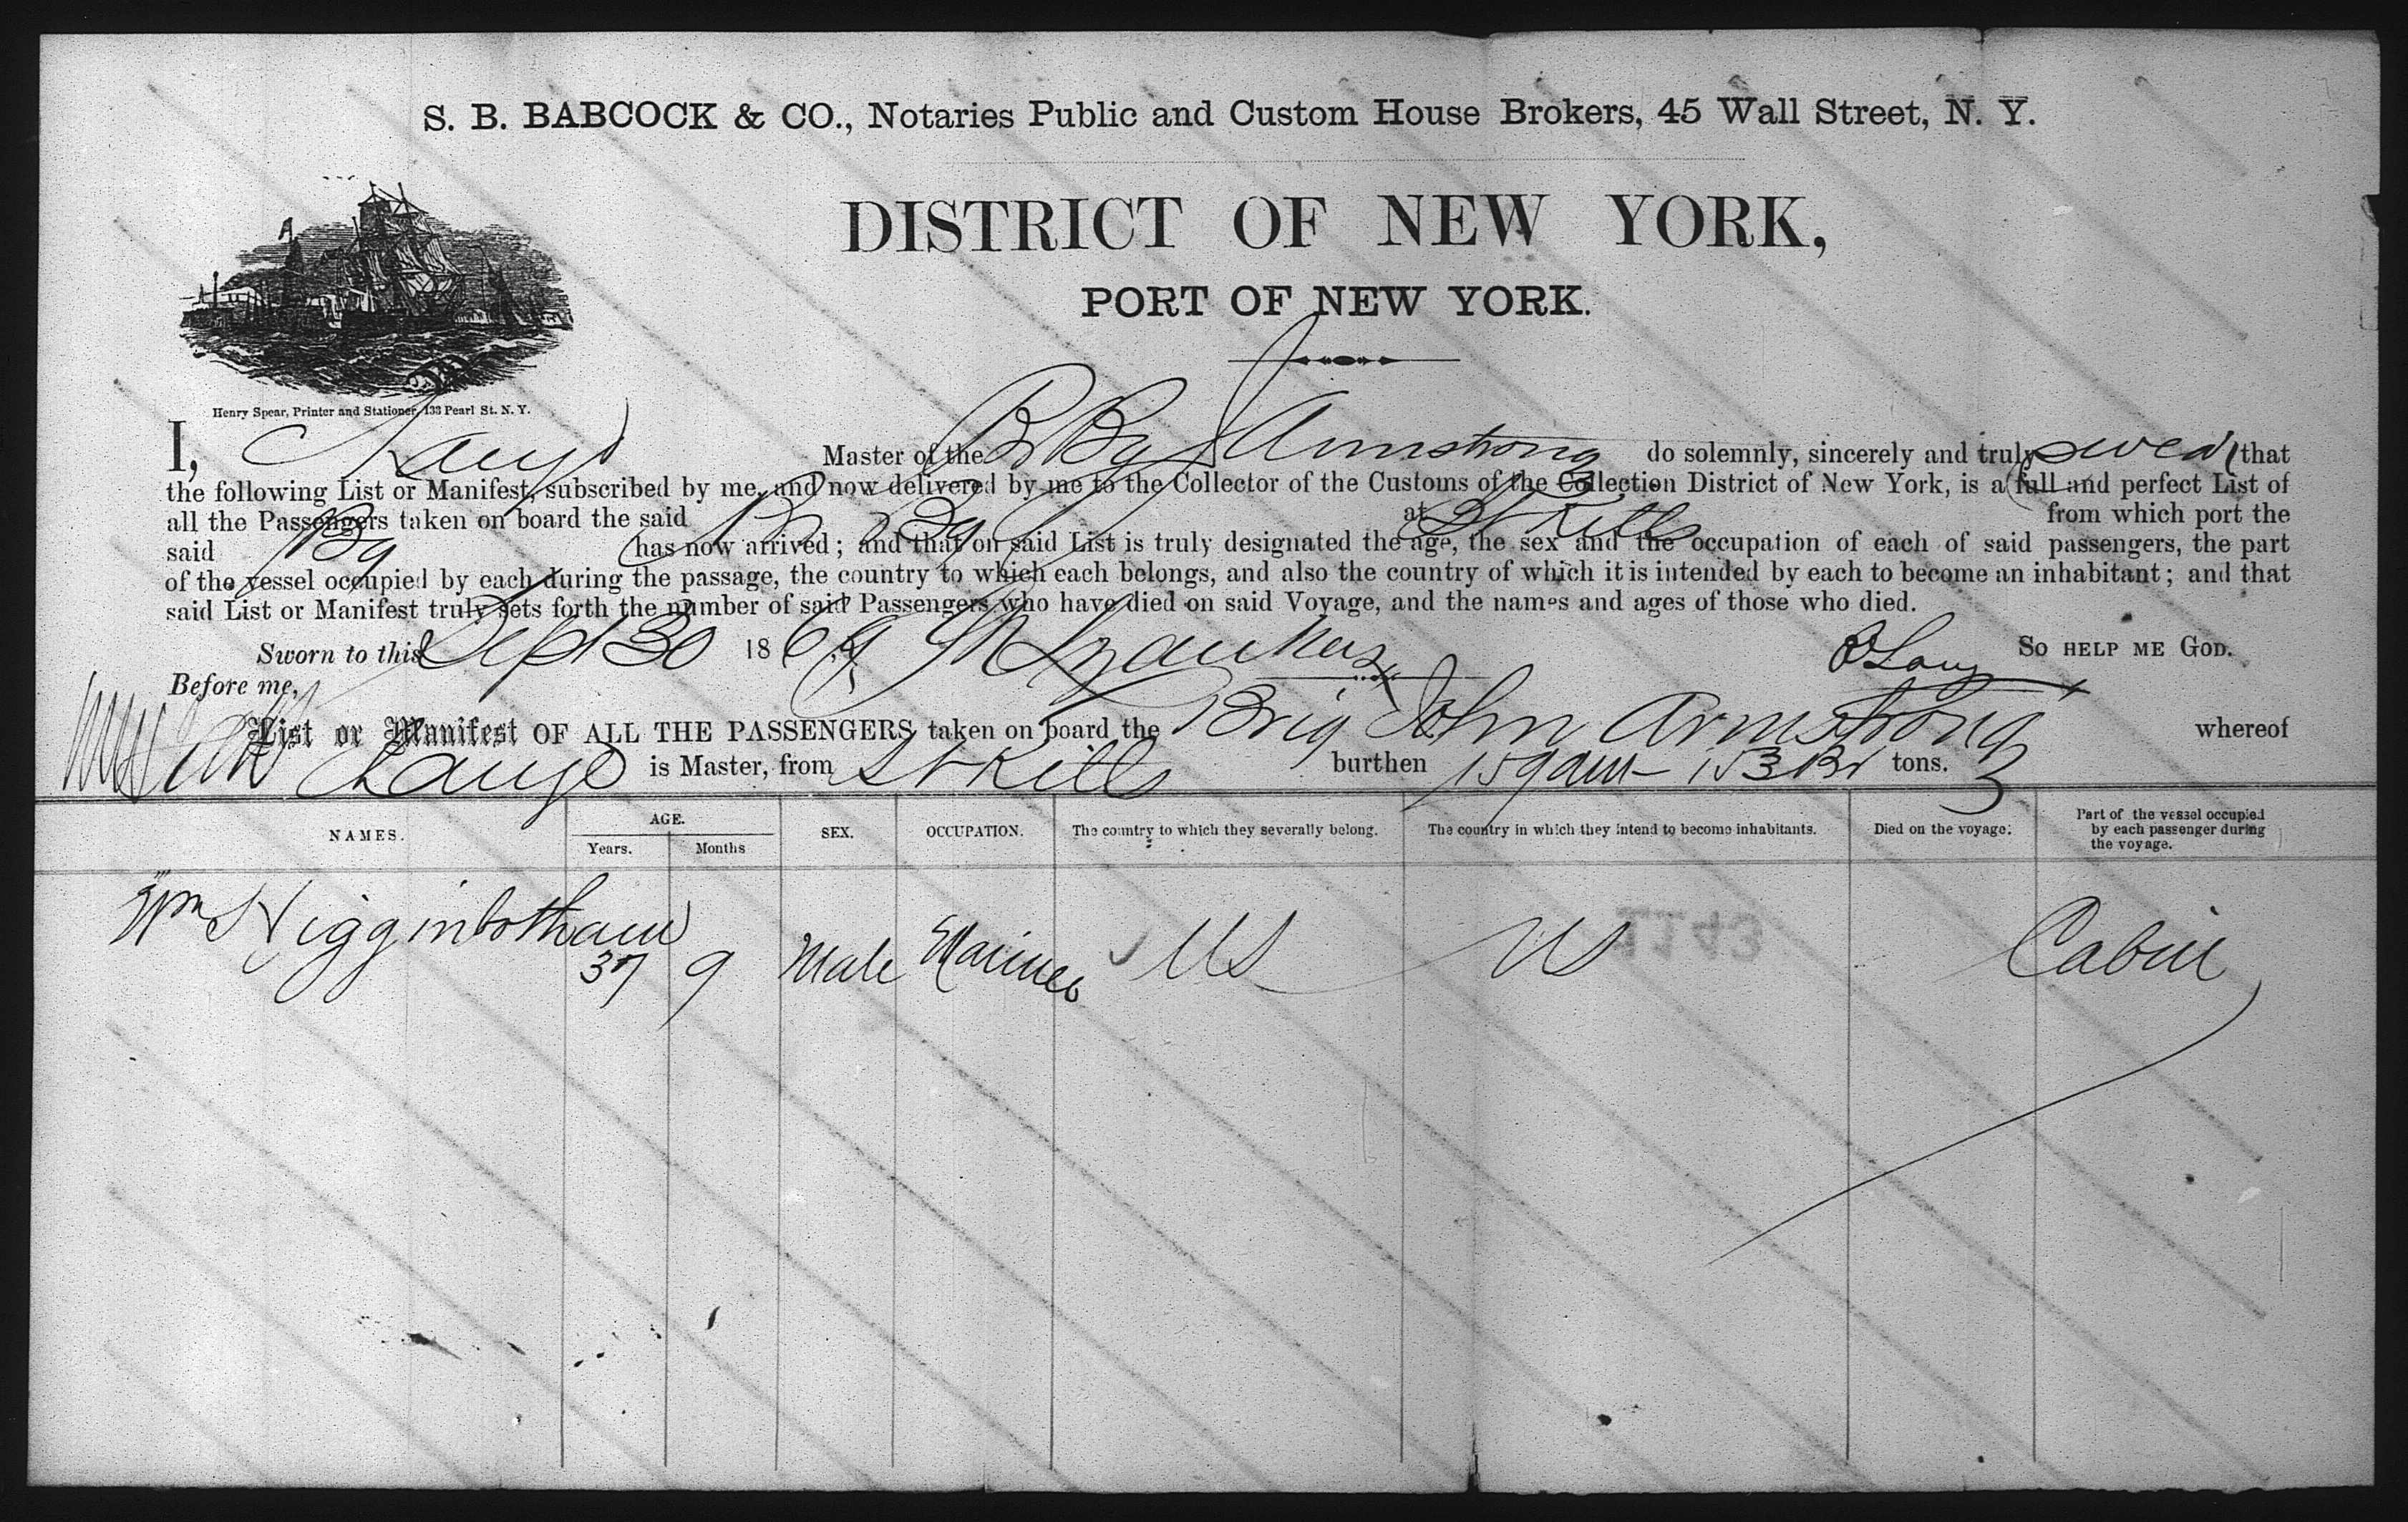 S. B. BABCOCK & CO., Notaries Public and Custom House Brokers, 45 Wall Street, N. Y.
DISTRICT OF NEW YORK,
PORT OF NEW YORK.
Henry Spear, Printer and Stationer, 133 Pearl St. N. Y.
I, Master of the B Bg J Armstrong do solemnly, sincerely and truly swear that
the following List or Manifest, subscribed by me, and now delivered by me to the Collector of the Customs of the Collection District of New York, is a full and perfect List of
all the Passengers taken on board the said Br Bg at St Kitts from which port the
said Bg has now arrived; and that on said List is truly designated the age, the sex and the occupation of each of said passengers, the part
of the vessel occupied by each during the passage, the country to which each belongs, and also the country of which it is intended by each to become an inhabitant; and that
said List or Manifest truly sets forth the number of said Passengers who have died on said Voyage, and the names and ages of those who died.
Sworn to this Sept 30 1869 SO HELP ME GOD.
Before me,
List or Manifest OF ALL THE PASSENGERS taken on board the Brig John Armstrong whereof
is Master, from St Kitts burthen tons.
NAMES. AGE. Years. Months SEX. OCCUPATION. The country to which they severally belong. The country in which they intend to become inhabitants. Died on the voyage. Part of the vessel occupied by each passenger during the voyage.
Wm Higginbotham 37 9 Male Mariner US US Cabin